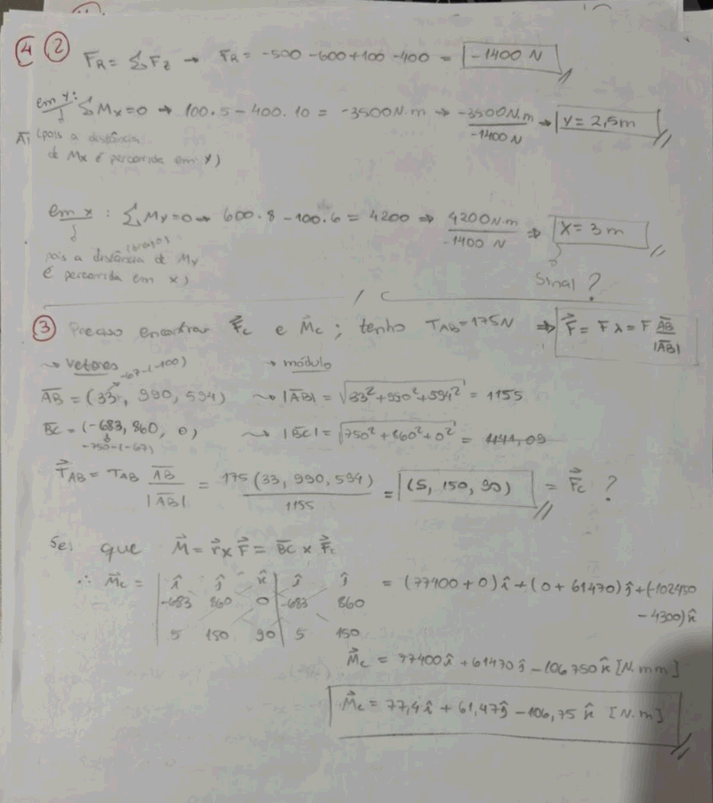 4 2 F_R = ΣF_z → F_R = -500 -600+100 -400 = -1400 N
em y: ΣMx=0 → 100.5 - 400.10 = -3500N.m → -3500N.m / -1400N → y = 2,5m
(pois a distância
de Mx é percorrida em y)
em x : ΣMy=0 → 600.8 - 100.6 = 4200 ⇒ 4200N.m / -1400 N ⇒ x = 3 m
pois a distância (braço) de My
é percorrida em x)
Sinal ?
3 Preciso encontrar F⃗c e M⃗c ; tenho T_AB = 175N ⇒ F⃗ = F λ = F AB / |AB|
→ vetores -67-(-100) → módulo
AB = (33, 990, 594) → |AB| = √33²+990²+594² = 1155
BC = (-683, 860, 0) → |BC| = √750²+860²+0² =
-750-(-67)
T⃗_AB = T_AB AB / |AB| = 175 (33, 990, 594) / 1155 = (5, 150, 90) = F⃗c ?
Sei que M⃗ = r⃗ x F⃗ = BC x F⃗c
∴ M⃗c = | î ĵ k̂ | î ĵ = (77400+0)î+(0+61470)ĵ+(-102450
-683 860 0 | -683 860 -4300)k̂
5 150 90 | 5 150
M⃗c = 77400î+61470ĵ-106750k̂ [N.mm]
M⃗c = 77,4î + 61,47ĵ - 106,75 k̂ [N.m]